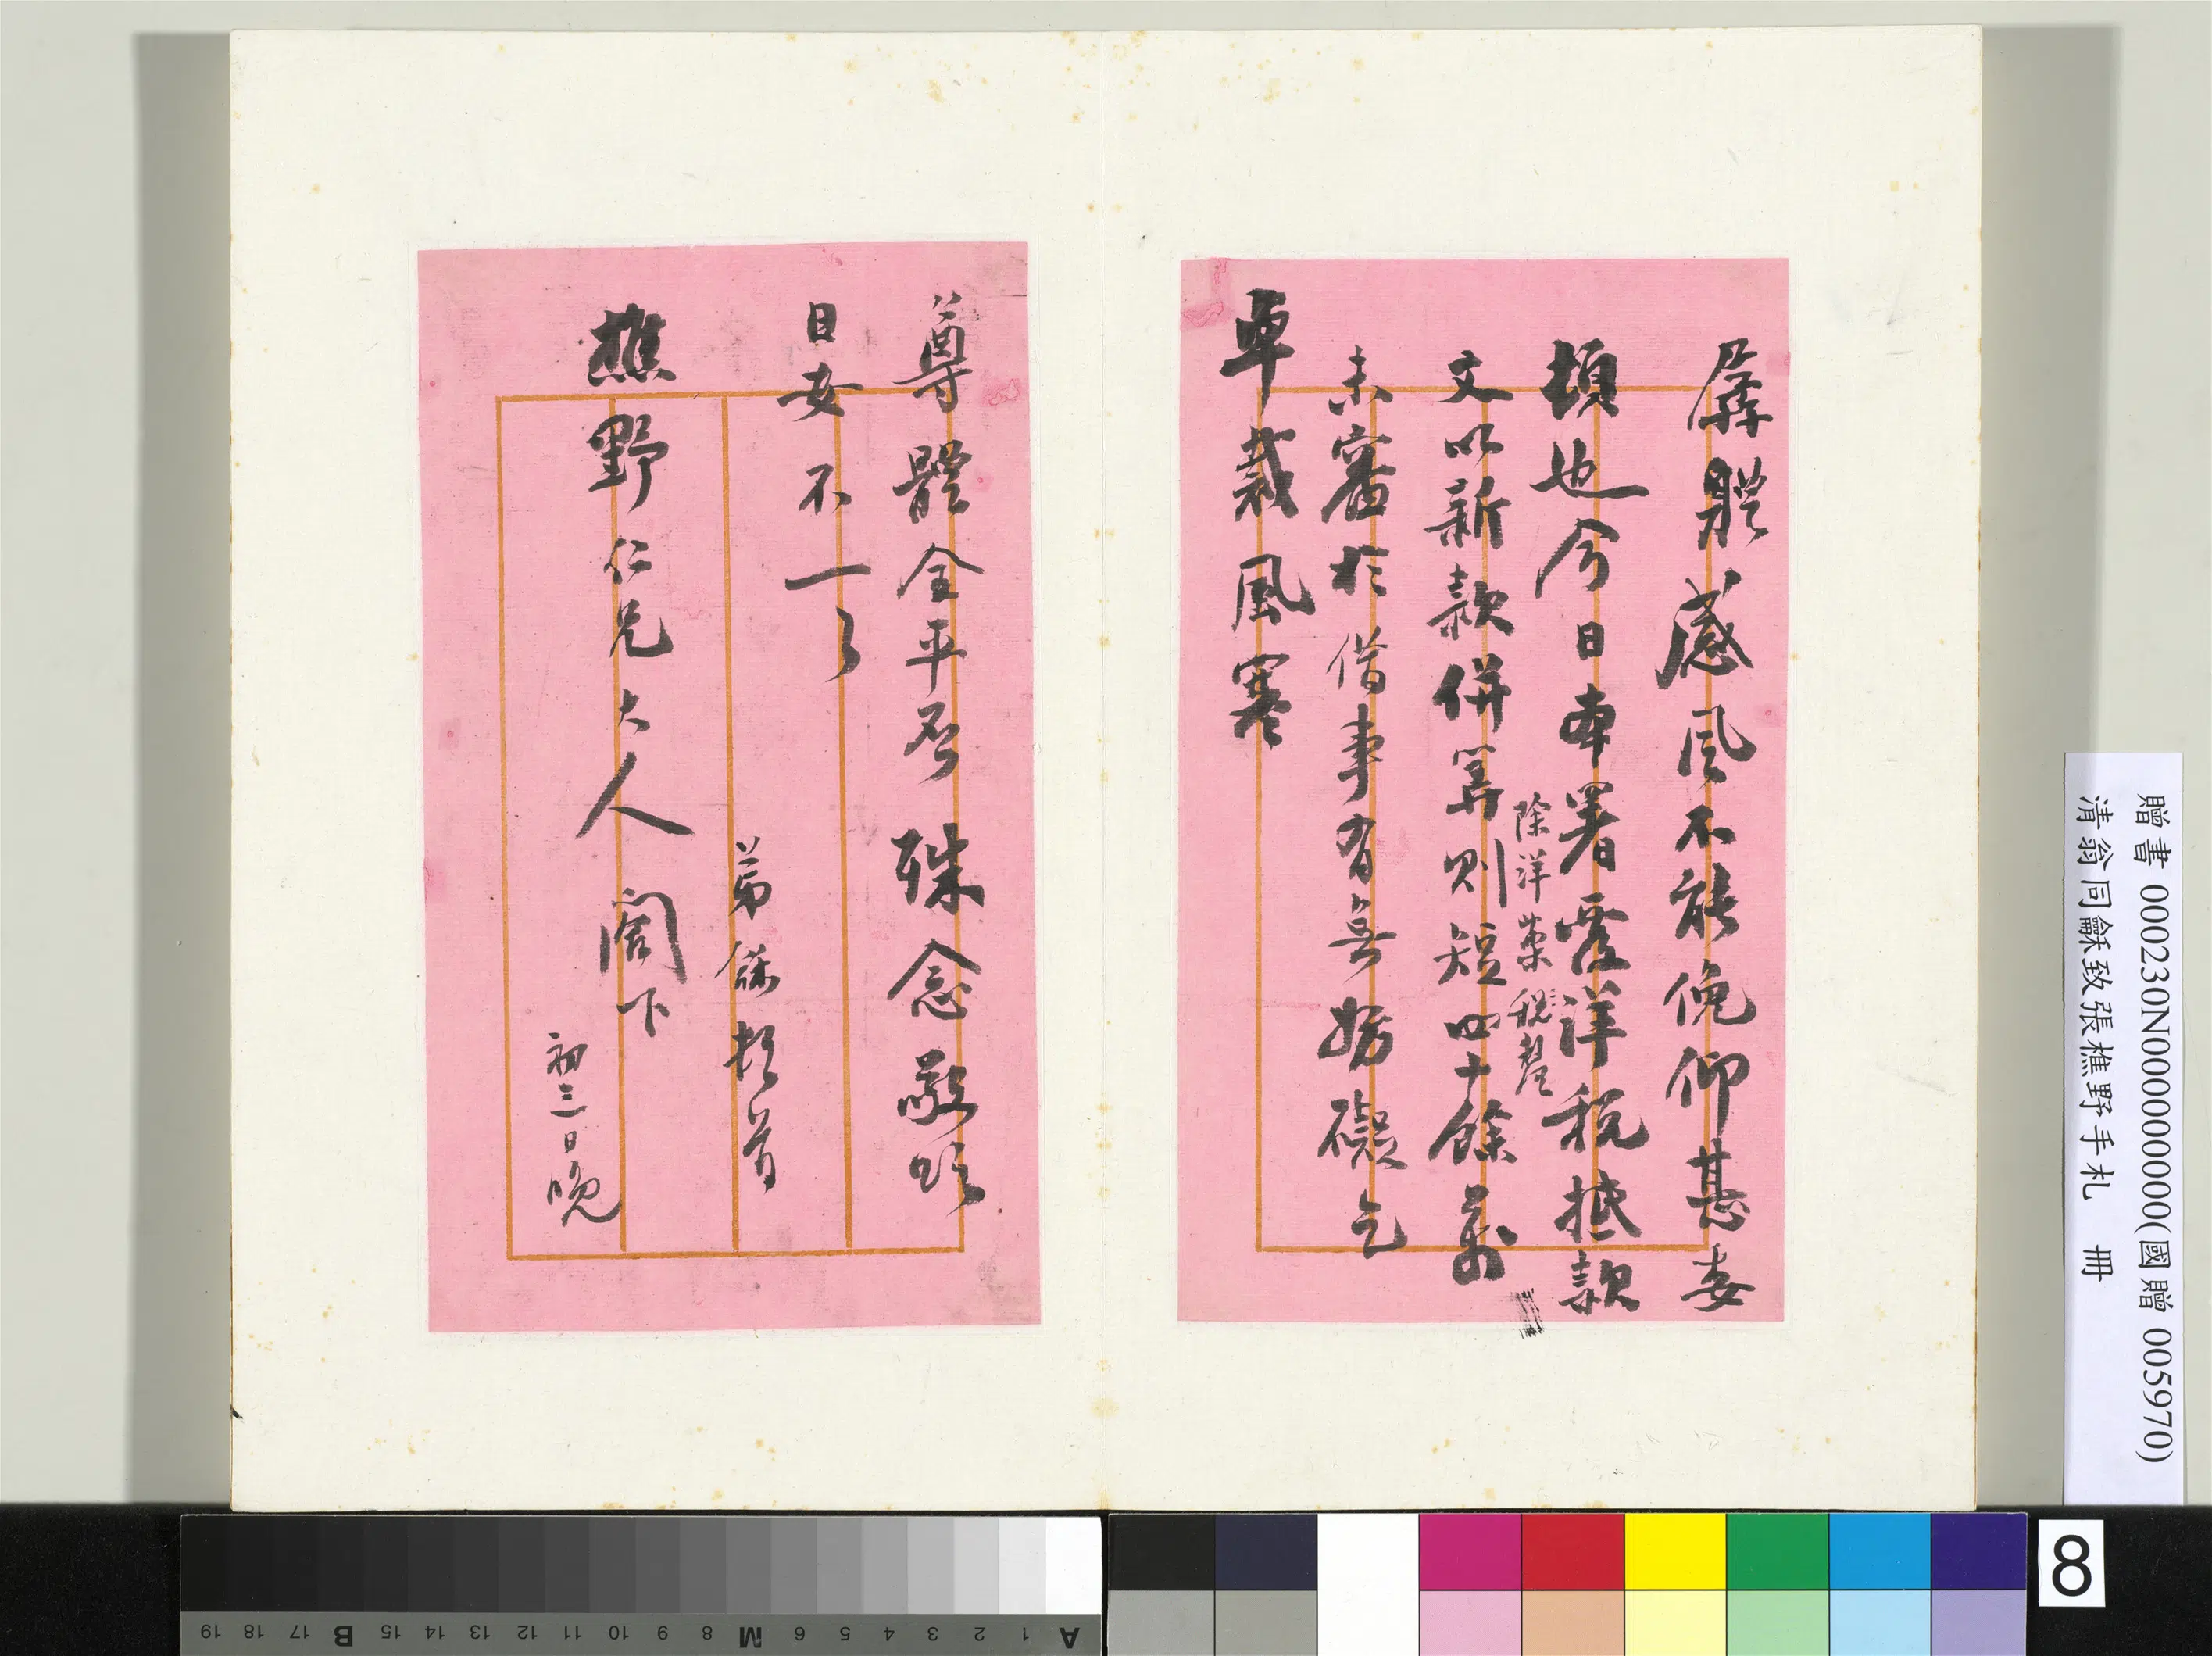 孱軀感風不能俛仰甚委
頓也今日本署覆洋稅抵款
文以新款併算則短四十餘萬
除洋藥稅釐
未審於借事有無妨礙乞
卓裁風寒
尊體全平否殊念敬頌
日安不一一
弟龢頓首
樵野仁兄大人閣下
初三日晚
贈書 000230N000000000(國贈 005970)
清翁同龢致張樵野手札 冊
8
A 1 2 3 4 5 6 M 8 9 10 11 12 13 14 15 B 17 18 19